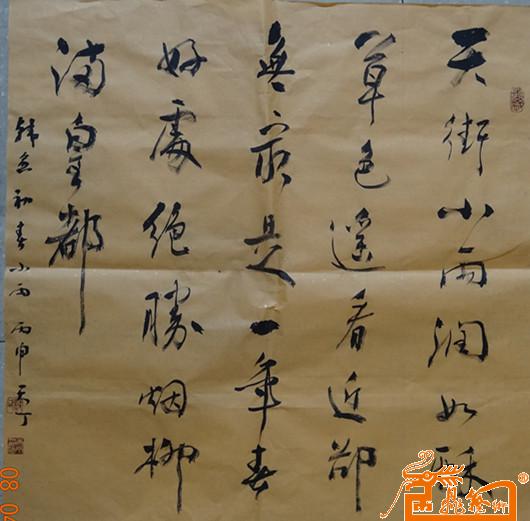 天街小雨润如酥
草色遥看近却
无最是一年春
好处绝胜烟柳
满皇都
韩愈初春小雨 丙申
08 04